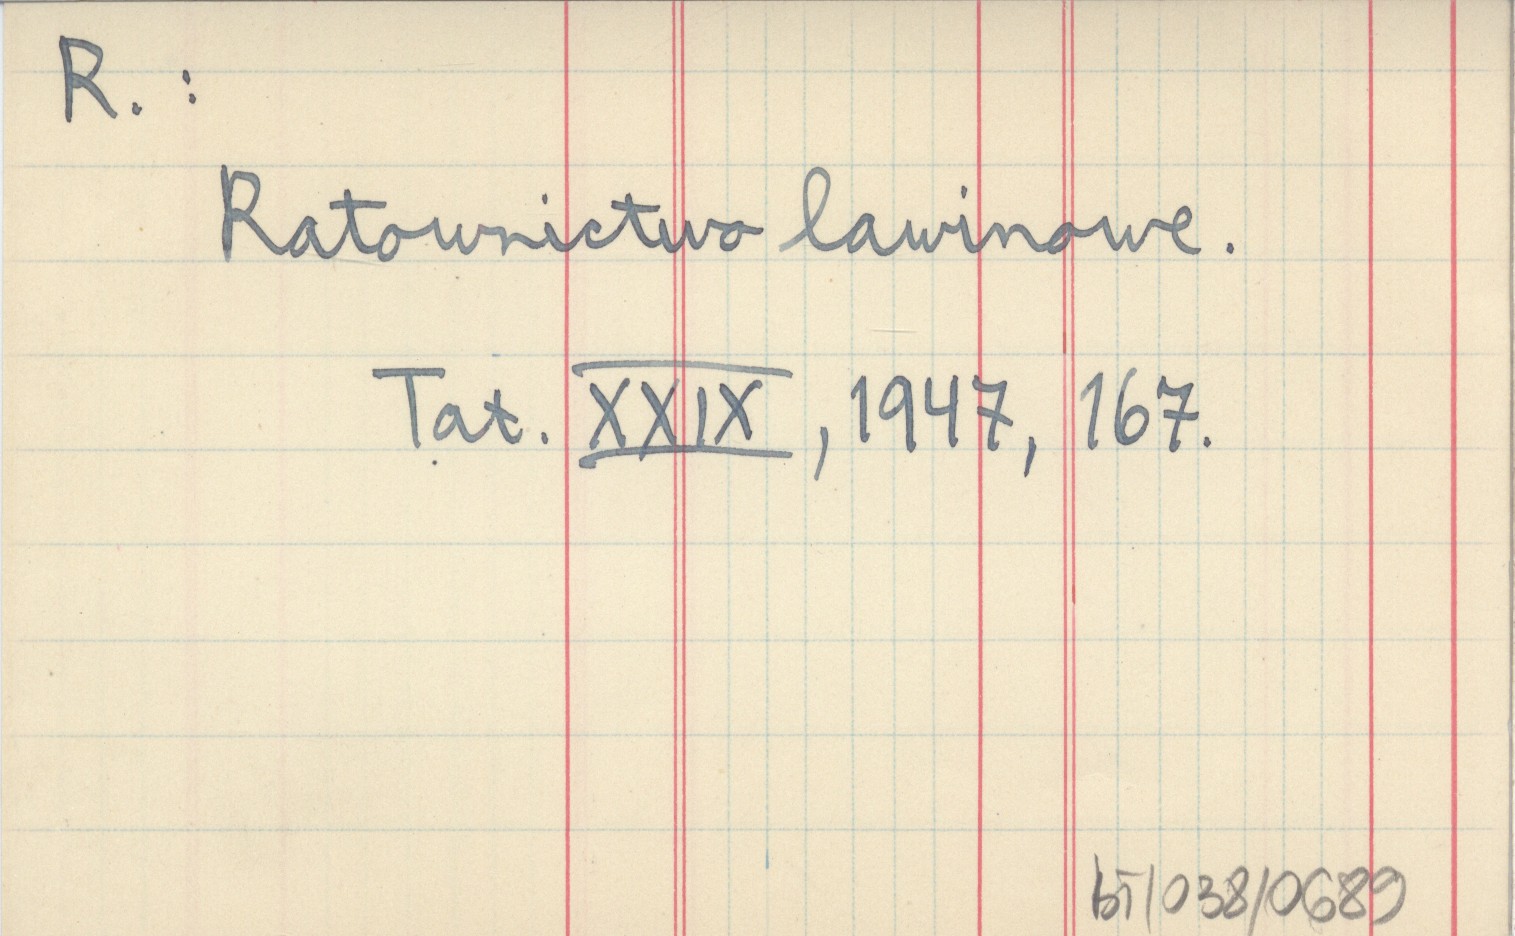 R. :
Ratownictwo lawinowe.
Tat. XXIX, 1947, 167.
bT/038/0689